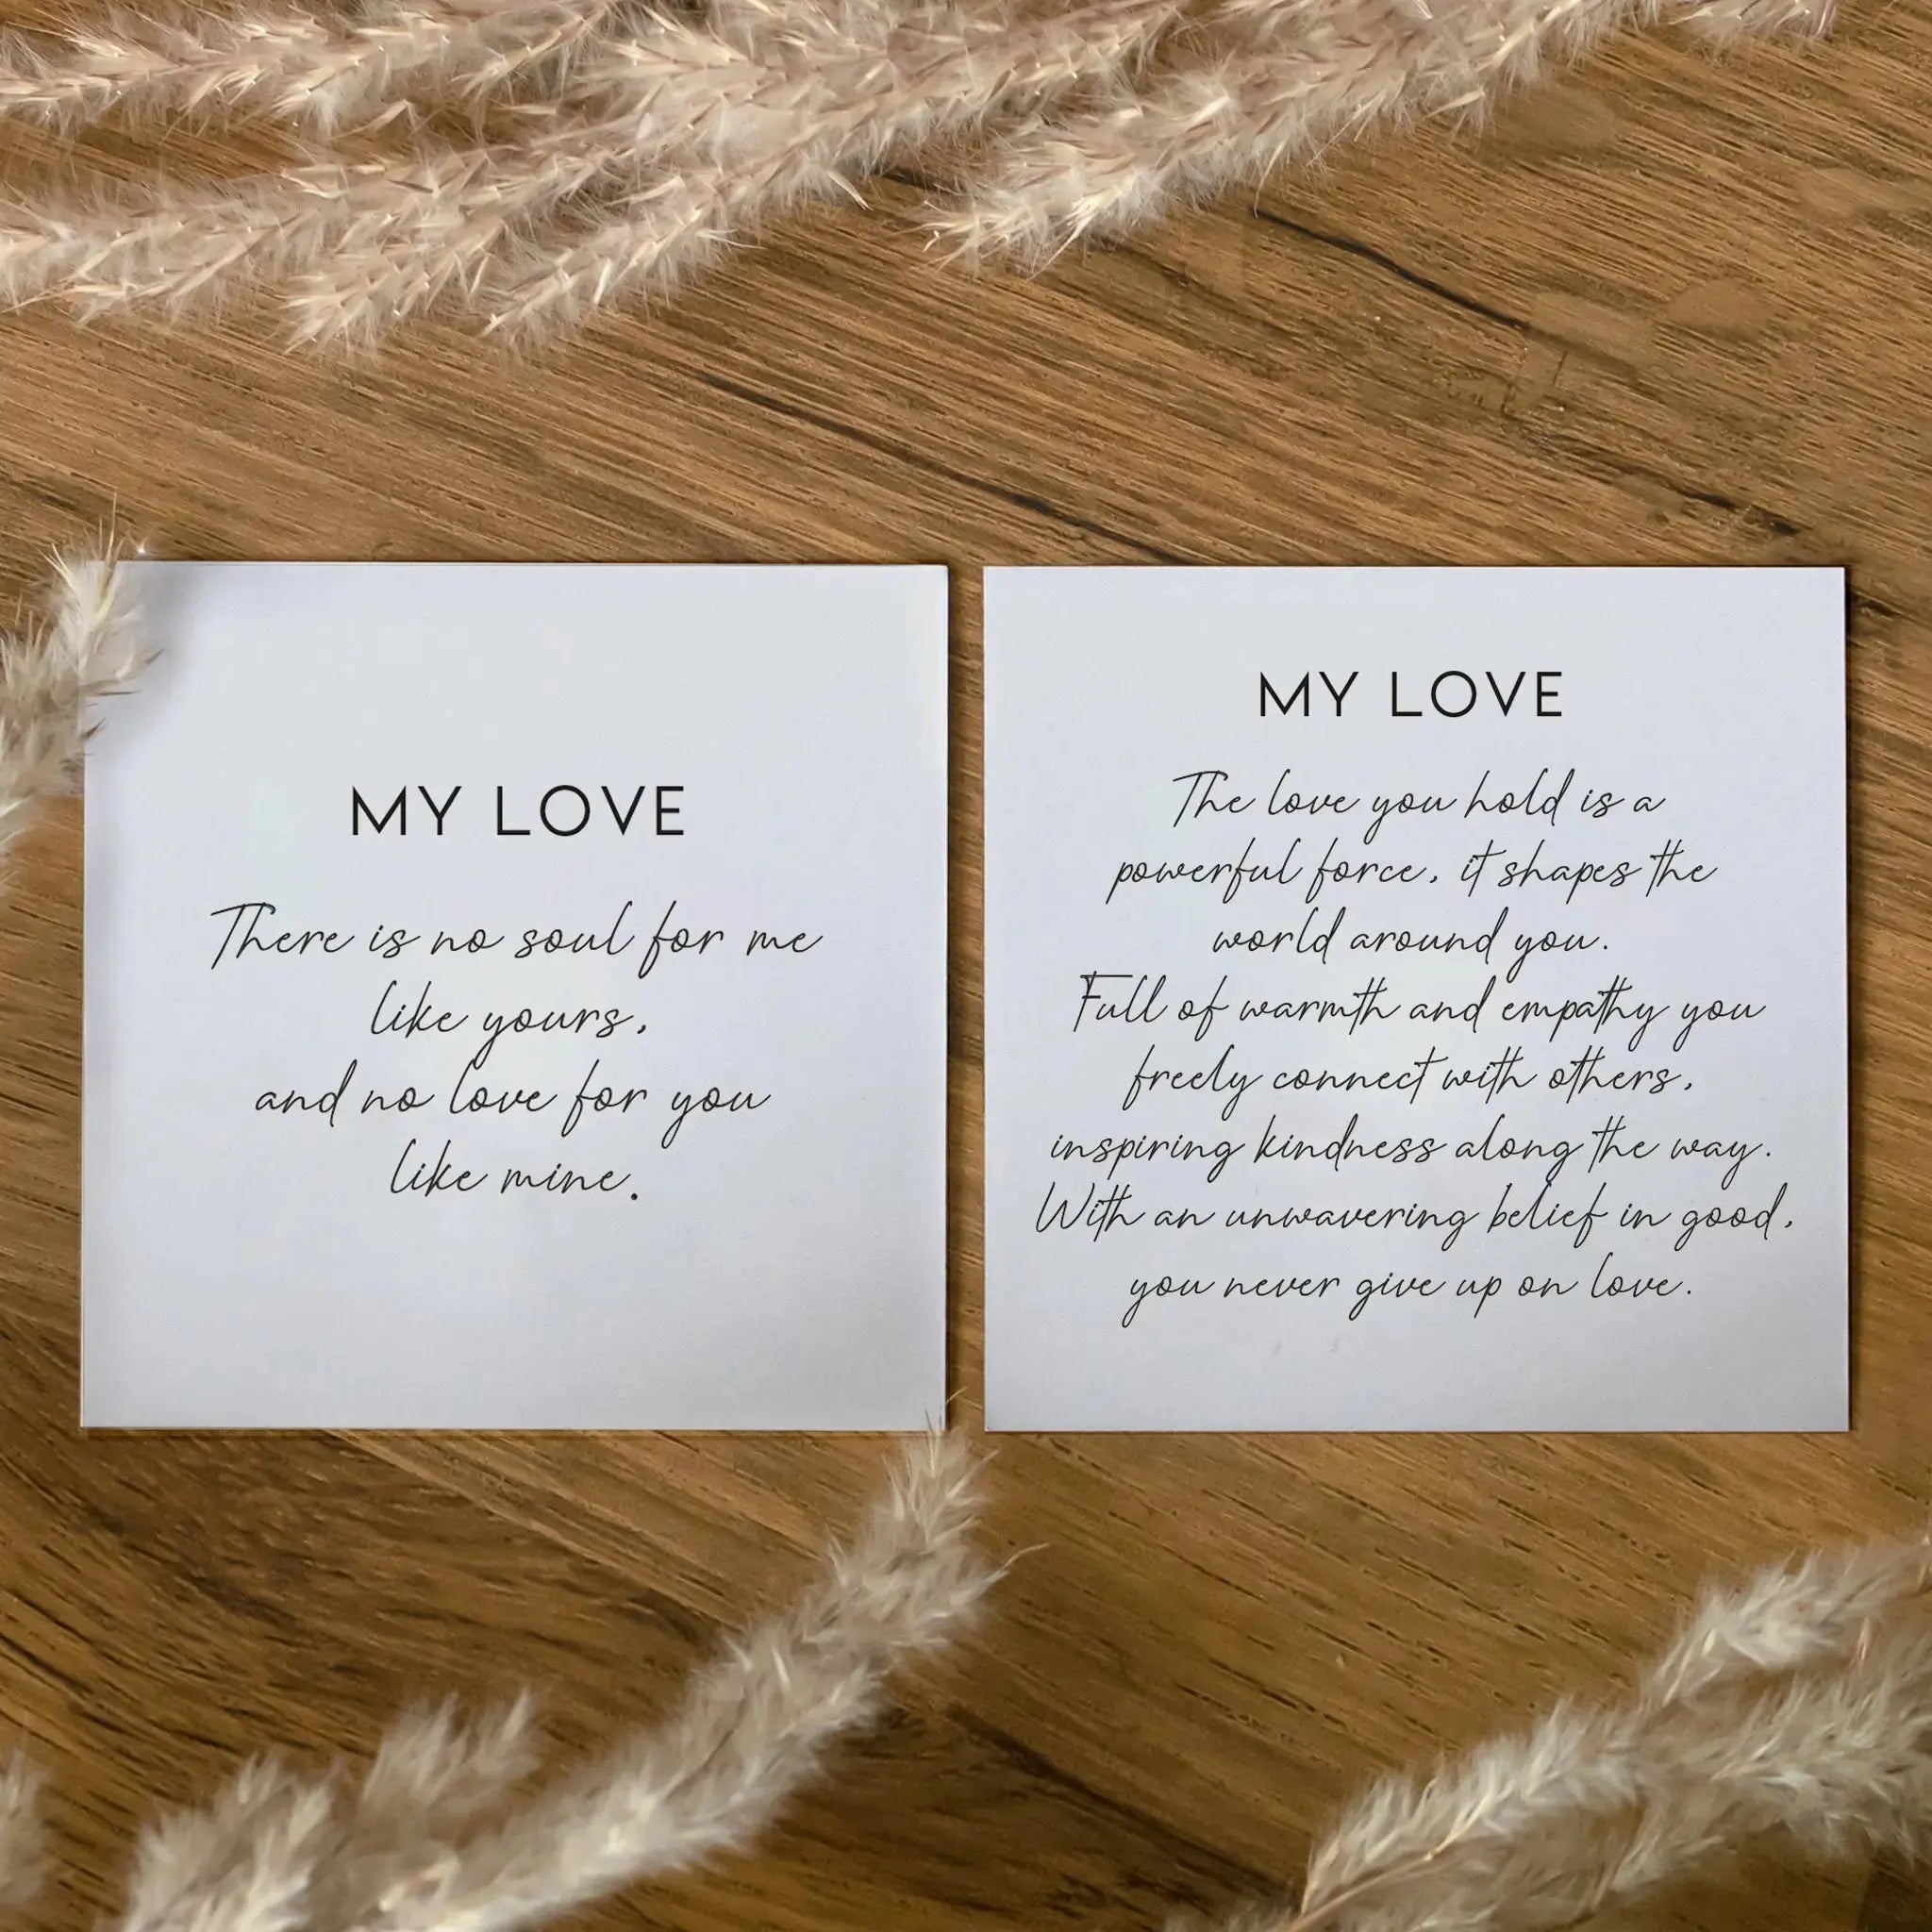 MY LOVE
There is no soul for me
like yours,
and no love for you
like mine.
MY LOVE
The love you hold is a
powerful force, it shapes the
world around you.
Full of warmth and empathy you
freely connect with others,
inspiring kindness along the way.
With an unwavering belief in good,
you never give up on love.